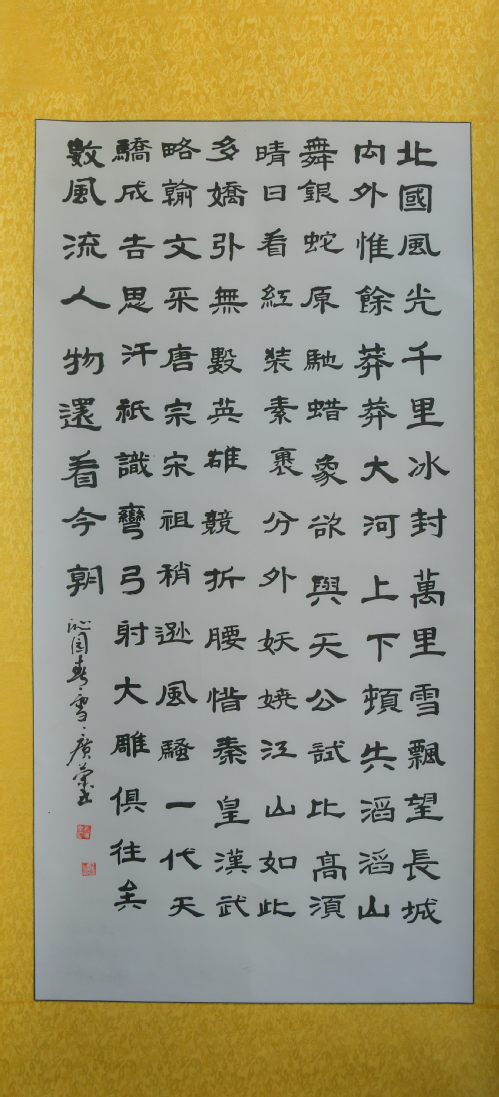 北國風光千里冰封萬里雪飄望長城
内外惟餘莽莽大河上下頓失滔滔山
舞銀蛇原馳蜡象欲與天公試比高須
晴日看紅裝素裹分外妖嬈江山如此
多嬌引無數英雄競折腰惜秦皇漢武
略輸文采唐宗宋祖稍遜風騷一代天
驕成吉思汗祇識彎弓射大雕俱往矣
數風流人物還看今朝
沁园春雪廣荣书